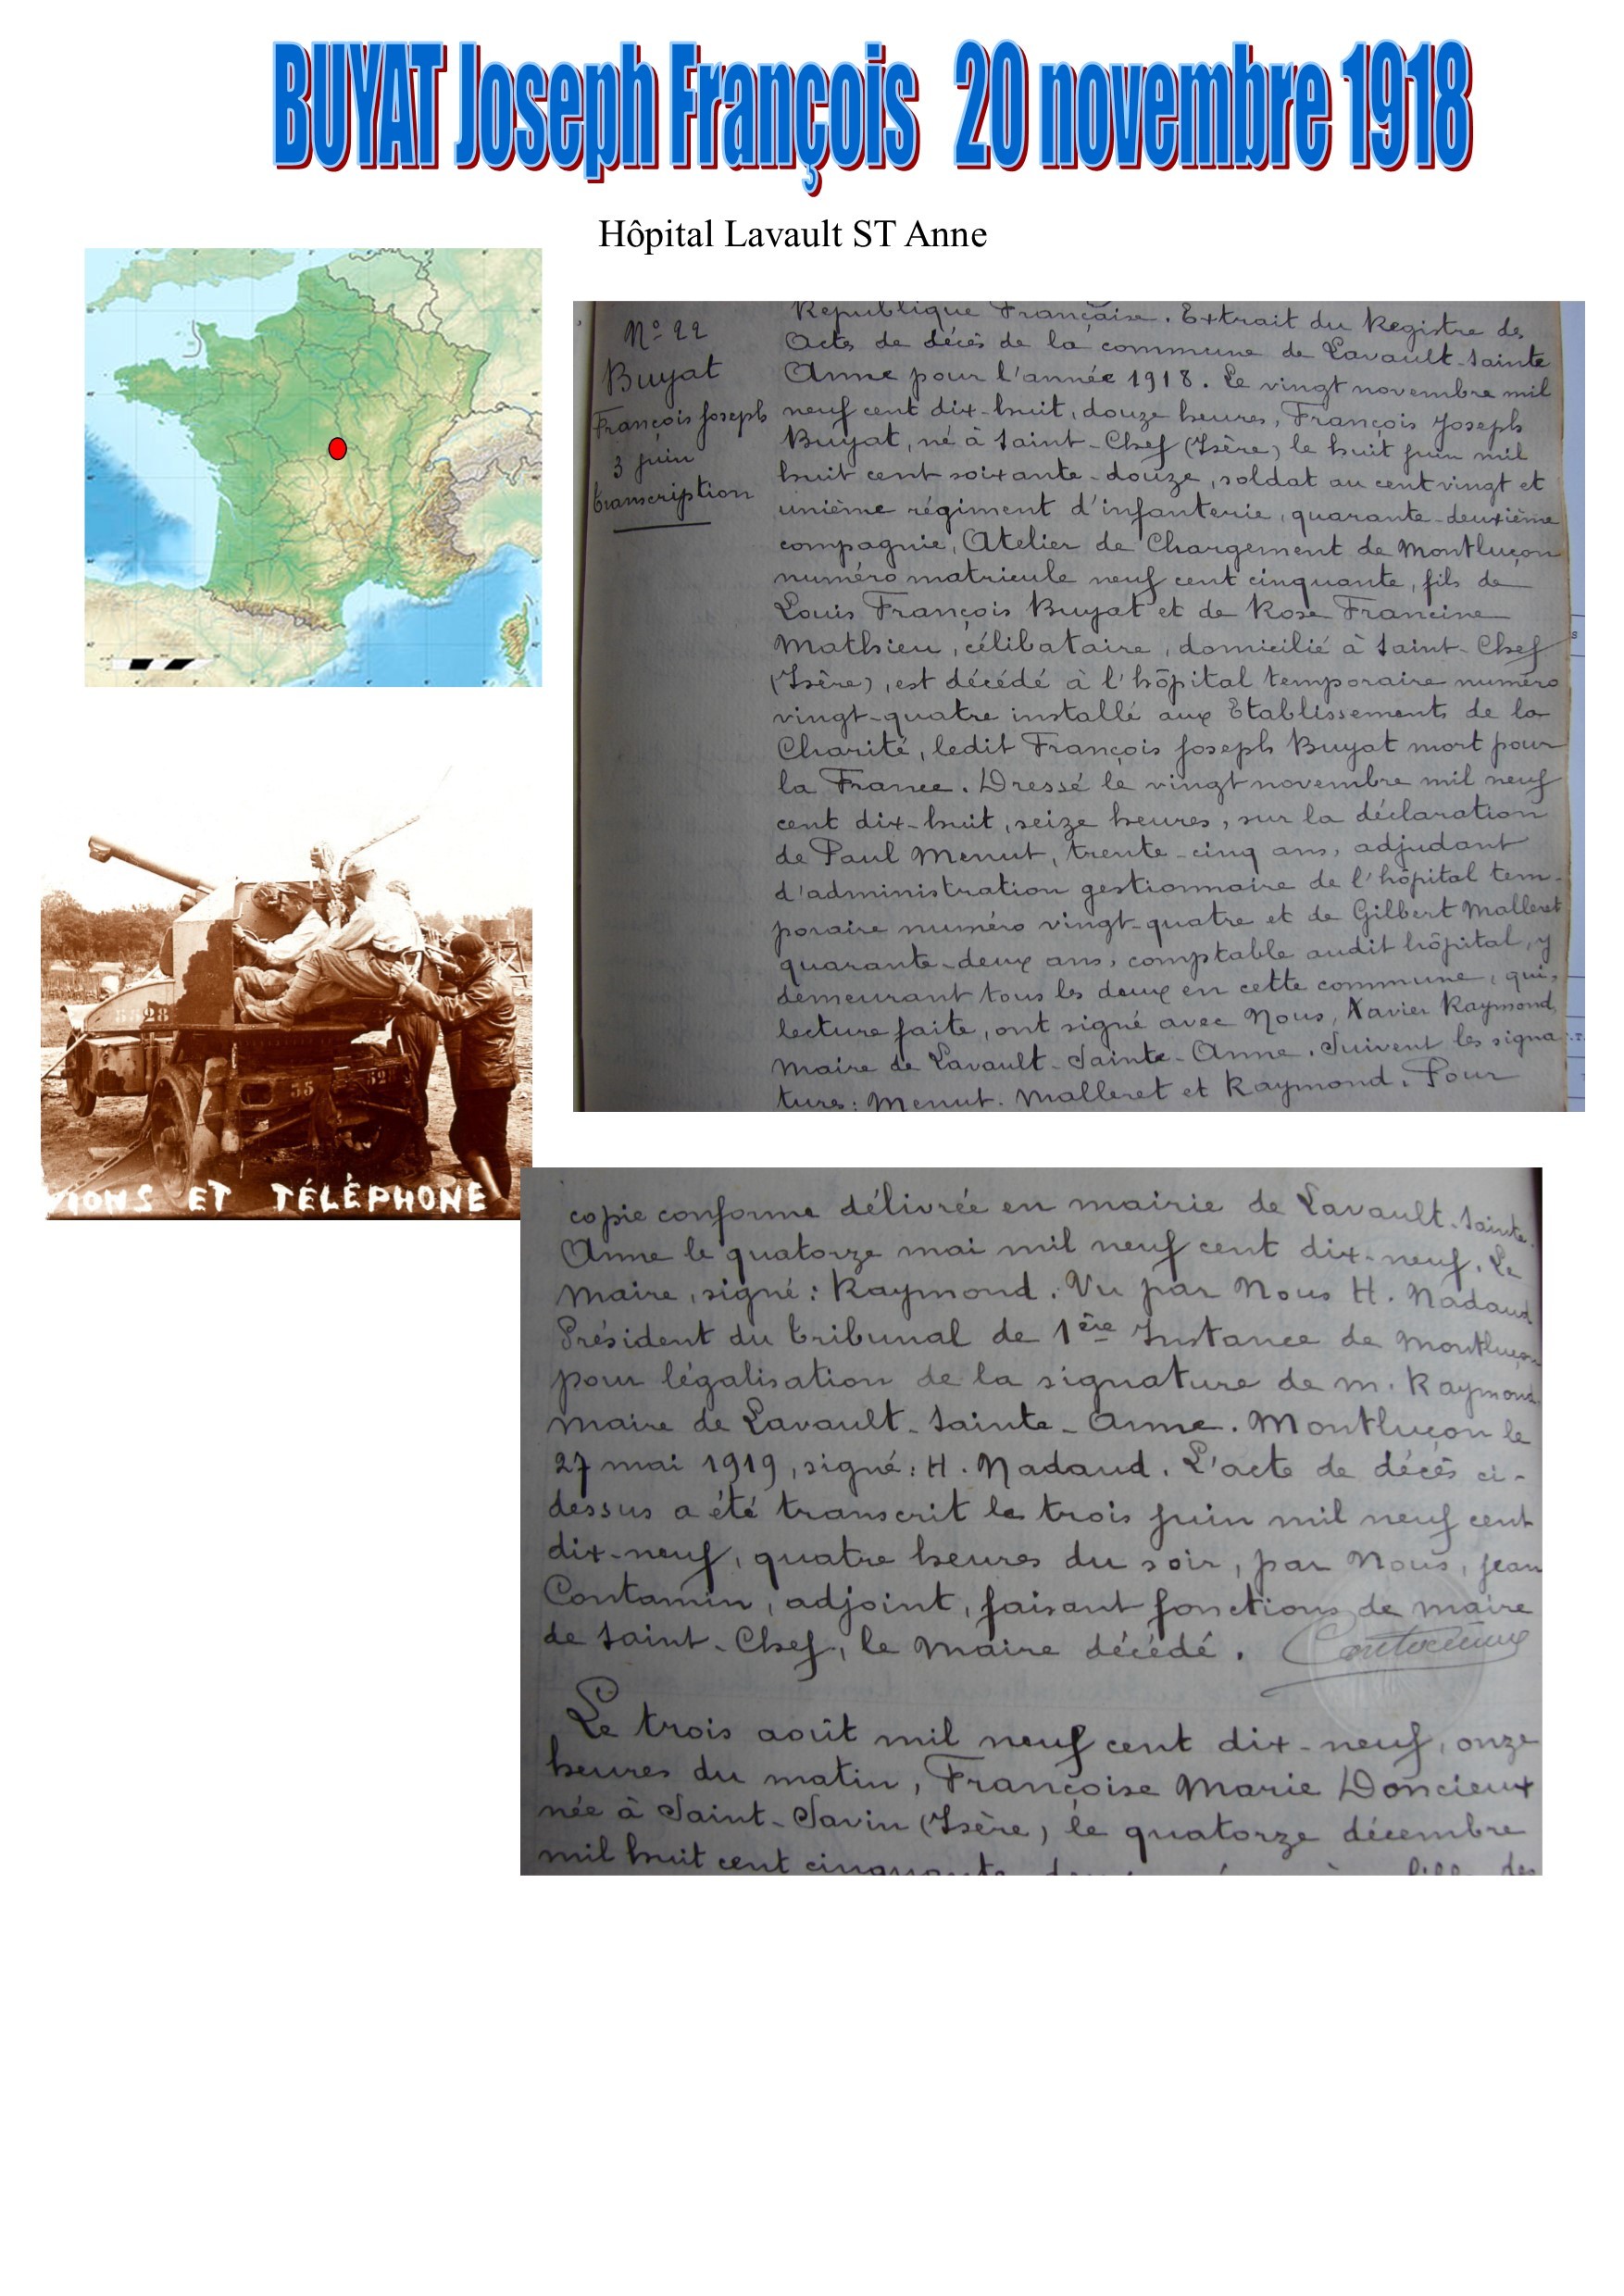 BUYAT Joseph François 20 novembre 1918
Hôpital Lavault ST Anne
Nº 22
Buyat
François Joseph
3 juin
transcription
République Française. Extrait du Registre des
Actes de décès de la commune de Lavault-Sainte
Anne pour l'année 1918. Le vingt novembre mil
neuf cent dix-huit, douze heures, François Joseph
Buyat, né à Saint-Chef (Isère) le huit juin mil
huit cent soixante-douze, soldat au cent vingt et
unième régiment d'infanterie, quarante-deuxième
compagnie, Atelier de Chargement de Montluçon
numéro matricule neuf cent cinquante, fils de
Louis François Buyat et de Rose Francine
Mathieu, célibataire, domicilié à Saint-Chef
(Isère), est décédé à l'hôpital temporaire numéro
vingt-quatre installé aux Etablissements de la
Charité, ledit François Joseph Buyat mort pour
la France. Dressé le vingt novembre mil neuf
cent dix-huit, seize heures, sur la déclaration
de Paul Menut, trente-cinq ans, adjudant
d'administration gestionnaire de l'hôpital tem-
poraire numéro vingt-quatre et de Gilbert Malleret
quarante-deux ans, comptable audit hôpital, y
demeurant tous les deux en cette commune, qui,
lecture faite, ont signé avec Nous, Xavier Raymond,
Maire de Lavault-Sainte-Anne. Suivent les signa
tures: Menut. Malleret et Raymond. Pour
5528
55
528
IONS ET TÉLÉPHONE
copie conforme délivrée en mairie de Lavault-Sainte-
Anne le quatorze mai mil neuf cent dix-neuf. Le
Maire, signé: Raymond. Vu par Nous H. Nadaud
Président du tribunal de 1ère Instance de Montluçon
pour légalisation de la signature de M. Raymond
Maire de Lavault-Sainte-Anne. Montluçon le
27 mai 1919, signé: H. Nadaud. L'acte de décès ci-
dessus a été transcrit le trois juin mil neuf cent
dix-neuf, quatre heures du soir, par Nous, Jean
Contamin, adjoint, faisant fonctions de maire
de Saint-Chef, le Maire décédé.
Le trois août mil neuf cent dix-neuf, onze
heures du matin, Françoise Marie Doncieux
née à Saint-Savin (Isère) le quatorze décembre
mil huit cent